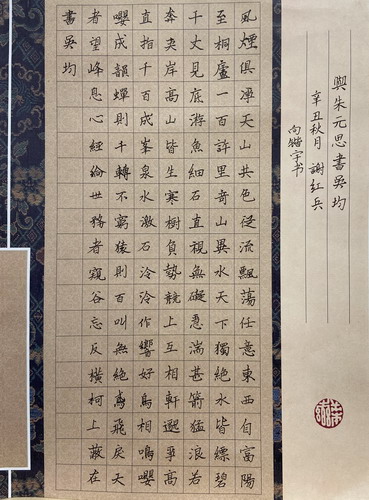 與朱元思書吳均
辛丑秋月 謝紅兵
向 字书
風煙俱淨天山共色從流飄蕩任意東西自富陽
至桐廬一百許里奇山異水天下獨絕水皆縹碧
千丈見底游魚細石直視無礙急湍甚箭猛浪若
奔夾岸高山皆生寒樹負勢競上互相軒邈爭高
直指千百成峯泉水激石泠泠作響好鳥相鳴嚶
嚶成韻蟬則千轉不窮猿則百叫無絕鳶飛戾天
者望峰息心經綸世務者窺谷忘反橫柯上蔽在
書吳均